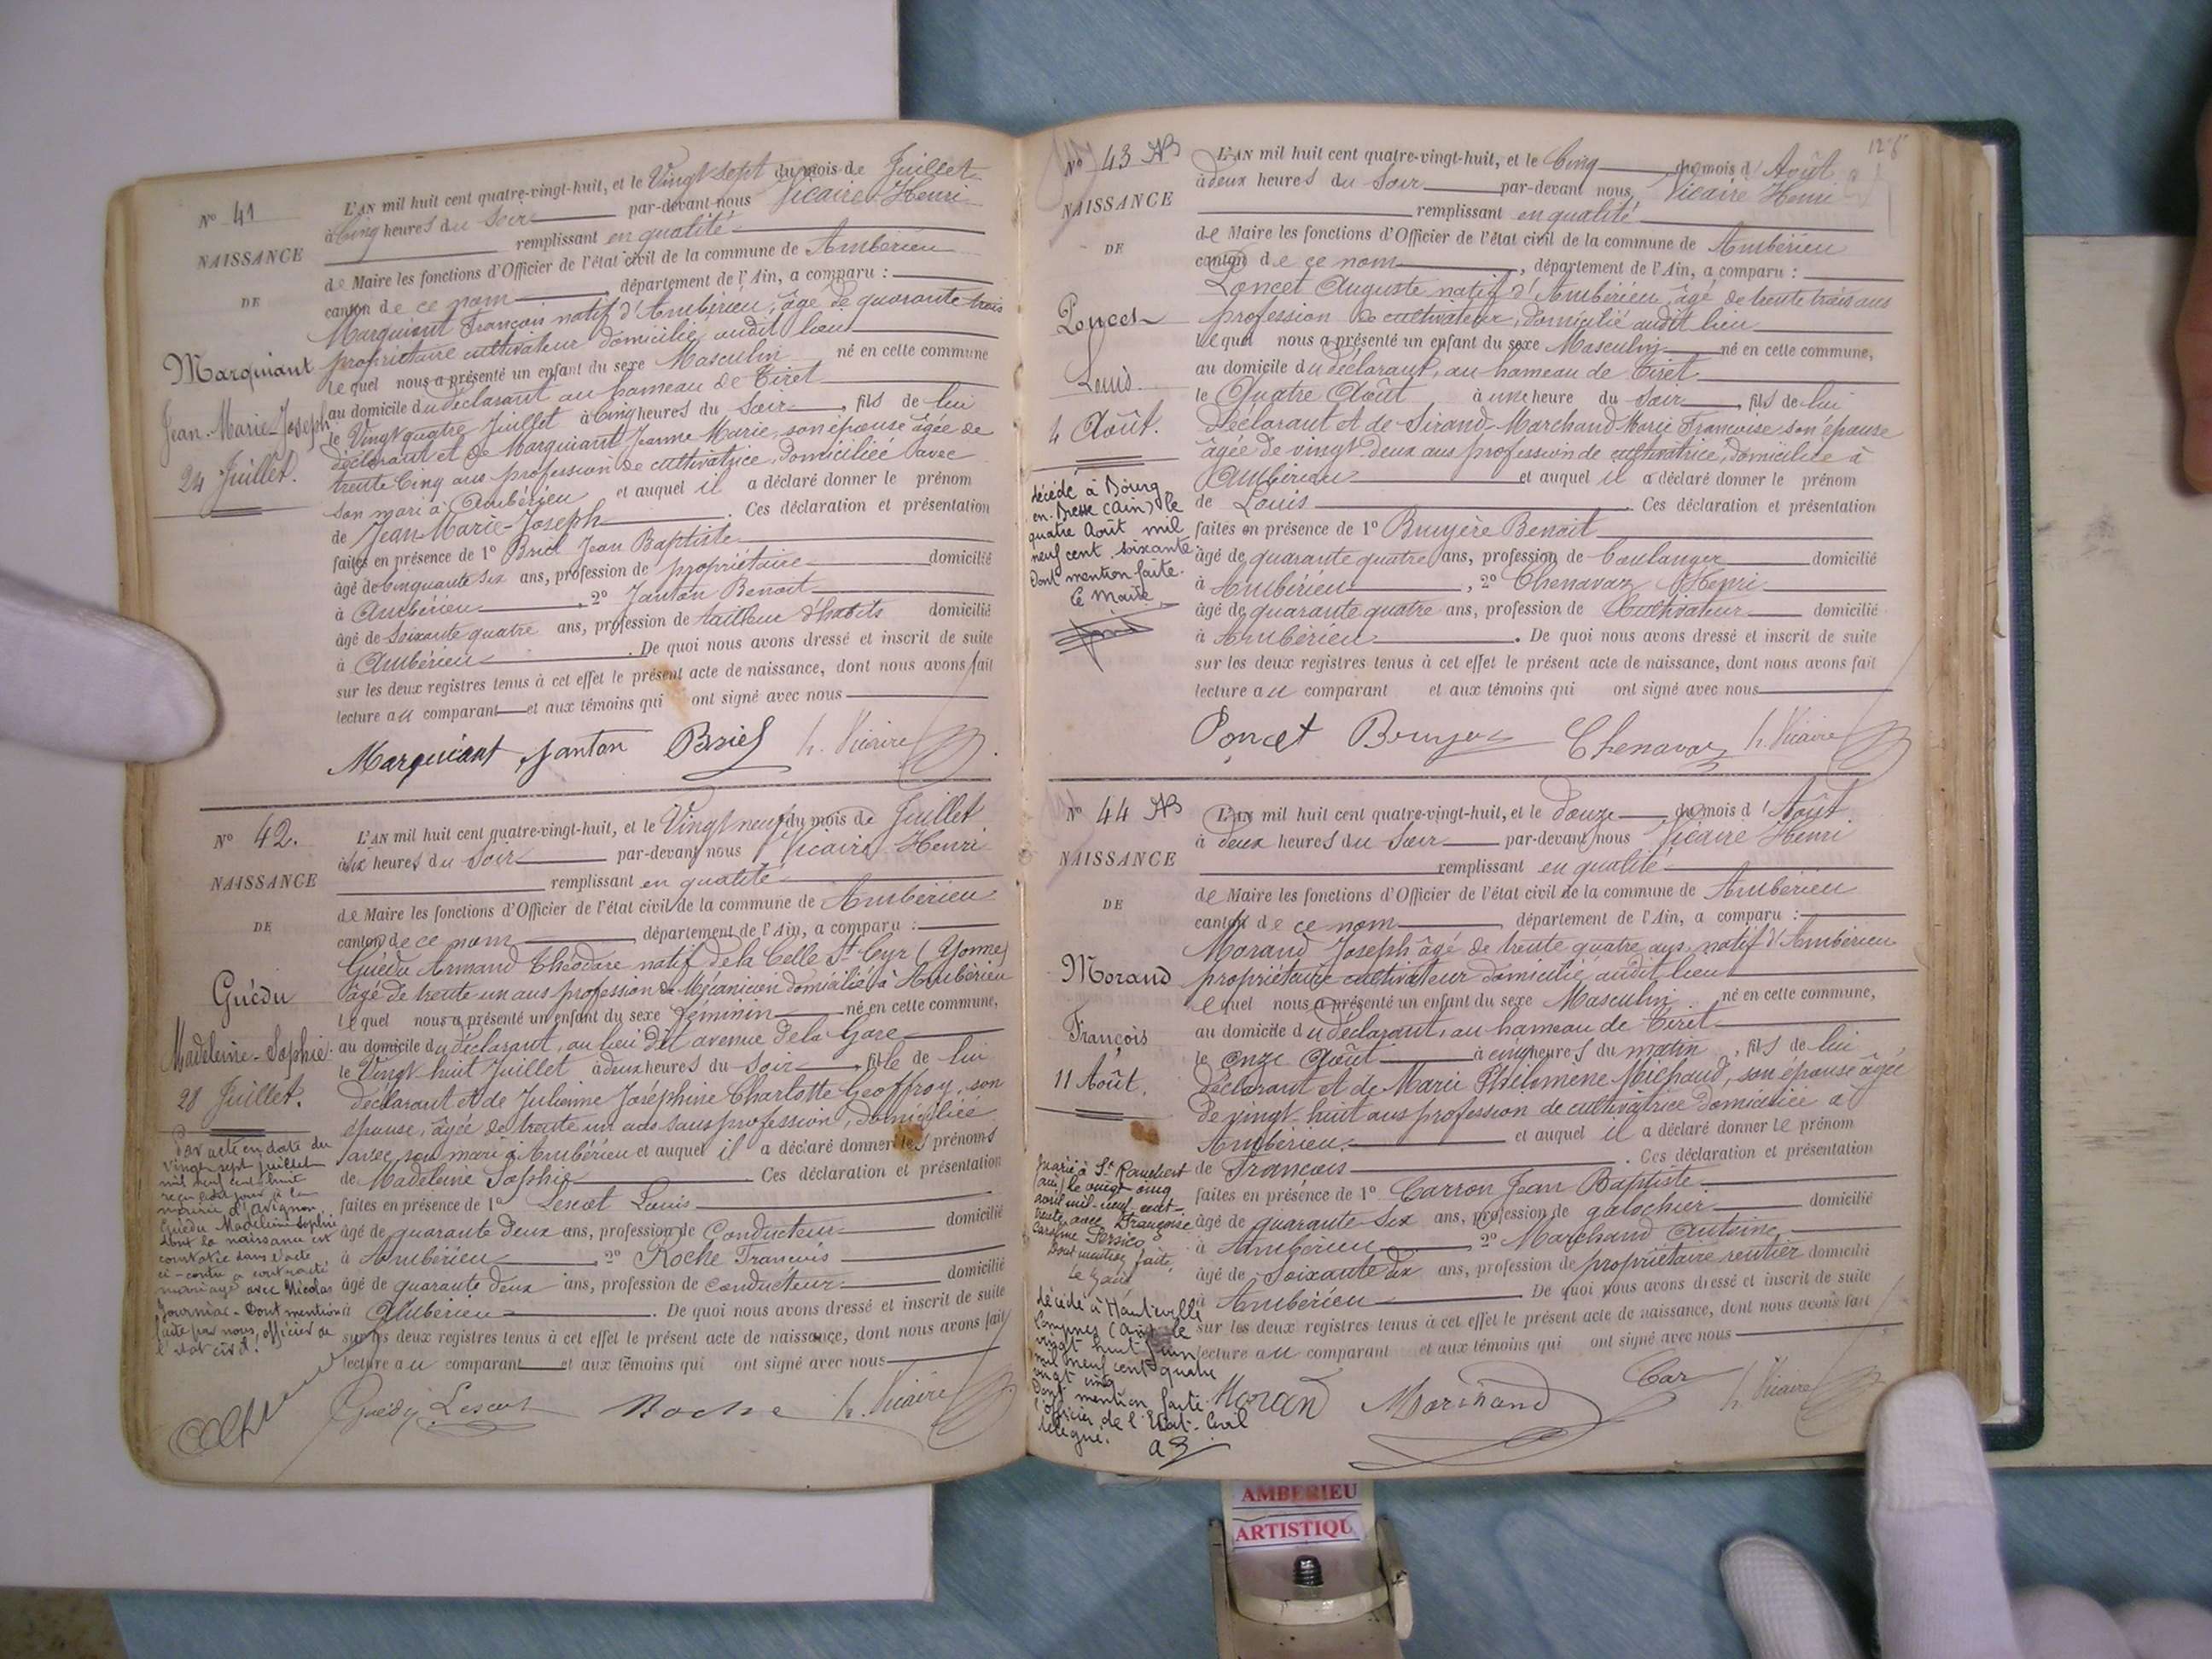 N° 41
NAISSANCE
DE
Marquiant
Jean-Marie-Joseph
24 Juillet.
L'AN mil huit cent quatre-vingt-huit, et le Vingt sept du mois de Juillet
à Cinq heures du Soir par-devant nous Vicaire Henri
remplissant en qualité
de Maire les fonctions d'Officier de l'état civil de la commune de Ambérieu
canton de ce nom, département de l'Ain, a comparu :
Marquiant François natif d'Ambérieu, âgé de quarante trois
propriétaire cultivateur domicilié audit lieu
lequel nous a présenté un enfant du sexe Masculin né en cette commune
au domicile du déclarant au hameau de Tiret
le Vingt quatre Juillet à Cinq heures du Soir, fils de lui
déclarant et de Marquiant Jeanne Marie, son épouse âgée de
trente cinq ans profession de cultivatrice, domiciliée avec
son mari à Ambérieu et auquel il a déclaré donner le prénom
de Jean Marie-Joseph. Ces déclaration et présentation
faites en présence de 1° Briel Jean Baptiste
âgé de Cinquante six ans, profession de propriétaire domicilié
à Ambérieu, 2° Janton Benoit
âgé de Soixante quatre ans, profession de tailleur d'habits domicilié
à Ambérieu. De quoi nous avons dressé et inscrit de suite
sur les deux registres tenus à cet effet le présent acte de naissance, dont nous avons fait
lecture au comparant et aux témoins qui ont signé avec nous
Marquiant Janton Briel h. Vicaire
N° 42.
NAISSANCE
DE
Guédu
Madeleine-Sophie
28 Juillet.
Par acte en date du
vingt sept juillet
mil neuf cent huit
reçu ce jour à la
mairie d'Avignon
Guédu Madeleine Sophie
dont la naissance est
constatée dans l'acte
ci-contre a contracté
mariage avec Nicolas
Journiac - Dont mention
faite par nous, officier de
l'état civil.
L'AN mil huit cent quatre-vingt-huit, et le Vingt neuf du mois de Juillet
à six heures du Soir par-devant nous Vicaire Henri
remplissant en qualité
de Maire les fonctions d'Officier de l'état civil de la commune de Ambérieu
canton de ce nom, département de l'Ain, a comparu :
Guédu Armand Théodore natif de la Celle St Cyr (Yonne)
âgé de trente un ans profession de Mécanicien domicilié à Ambérieu
lequel nous a présenté un enfant du sexe féminin né en cette commune,
au domicile du déclarant, au lieu dit avenue de la Gare
le Vingt huit Juillet à deux heures du Soir, fille de lui
déclarant et de Julienne Joséphine Charlotte Geoffroy, son
épouse, âgée de trente un ans sans profession, domiciliée
avec son mari à Ambérieu et auquel il a déclaré donner les prénoms
de Madeleine Sophie Ces déclaration et présentation
faites en présence de 1° Lescot Louis
âgé de quarante deux ans, profession de Conducteur domicilié
à Ambérieu, 2° Roche François
âgé de quarante deux ans, profession de conducteur domicilié
à Ambérieu. De quoi nous avons dressé et inscrit de suite
sur les deux registres tenus à cet effet le présent acte de naissance, dont nous avons fait
lecture au comparant et aux témoins qui ont signé avec nous
Guédu Lescot Roche h. Vicaire
126
N° 43
NAISSANCE
DE
Poncet
Louis.
4 Août.
décédé à Bourg
en-Bresse (Ain) le
quatre Août mil
neuf cent soixante.
Dont mention faite.
Le Maire
L'AN mil huit cent quatre-vingt-huit, et le Cinq du mois d'Août
à deux heures du Soir par-devant nous Vicaire Henri
remplissant en qualité
de Maire les fonctions d'Officier de l'état civil de la commune de Ambérieu
canton de ce nom, département de l'Ain, a comparu :
Poncet Auguste natif d'Ambérieu, âgé de trente trois ans
profession de cultivateur, domicilié audit lieu
lequel nous a présenté un enfant du sexe Masculin né en cette commune,
au domicile du déclarant, au hameau de Tiret
le Quatre Août à une heure du soir, fils de lui
déclarant et de Sirand-Marchand Marie Françoise son épouse
âgée de vingt deux ans profession de cultivatrice, domiciliée à
Ambérieu et auquel il a déclaré donner le prénom
de Louis. Ces déclaration et présentation
faites en présence de 1° Bruyère Benoit
âgé de quarante quatre ans, profession de boulanger domicilié
à Ambérieu, 2° Chenavaz Henri
âgé de quarante quatre ans, profession de Cultivateur domicilié
à Ambérieu. De quoi nous avons dressé et inscrit de suite
sur les deux registres tenus à cet effet le présent acte de naissance, dont nous avons fait
lecture au comparant et aux témoins qui ont signé avec nous
Poncet Bruyere Chenavaz h. Vicaire
N° 44
NAISSANCE
DE
Morand
François
11 Août.
marié à St Rambert
(ain) le vingt-cinq
avril mil-neuf-cent-
trente avec Françoise
Caroline Persico
Dont mention faite,
Le Maire
décédé à Hauteville
Lompnes (Ain) le
vingt huit Juin
mil neuf cent quatre
vingt cinq
Dont mention faite.
l'Officier de l'Etat-Civil
délégué.
L'AN mil huit cent quatre-vingt-huit, et le Douze du mois d'Août
à deux heures du Soir par-devant nous Vicaire Henri
remplissant en qualité
de Maire les fonctions d'Officier de l'état civil de la commune de Ambérieu
canton de ce nom, département de l'Ain, a comparu :
Morand Joseph âgé de trente quatre ans, natif d'Ambérieu
propriétaire cultivateur domicilié audit lieu
lequel nous a présenté un enfant du sexe Masculin né en cette commune,
au domicile du déclarant, au hameau de Tiret
le Onze Août à cinq heures du matin, fils de lui
déclarant et de Marie Philomène Michaud, son épouse âgée
de vingt-huit ans profession de cultivatrice domiciliée à
Ambérieu. et auquel il a déclaré donner le prénom
de François. Ces déclaration et présentation
faites en présence de 1° Carron Jean Baptiste
âgé de quarante-six ans, profession de galochier domicilié
à Ambérieu, 2° Marchand Antoine
âgé de Soixante dix ans, profession de propriétaire rentier domicilié
à Ambérieu De quoi nous avons dressé et inscrit de suite
sur les deux registres tenus à cet effet le présent acte de naissance, dont nous avons fait
lecture au comparant et aux témoins qui ont signé avec nous
Morand Marchand Car h. Vicaire
AMBERIEU
ARTISTIQU